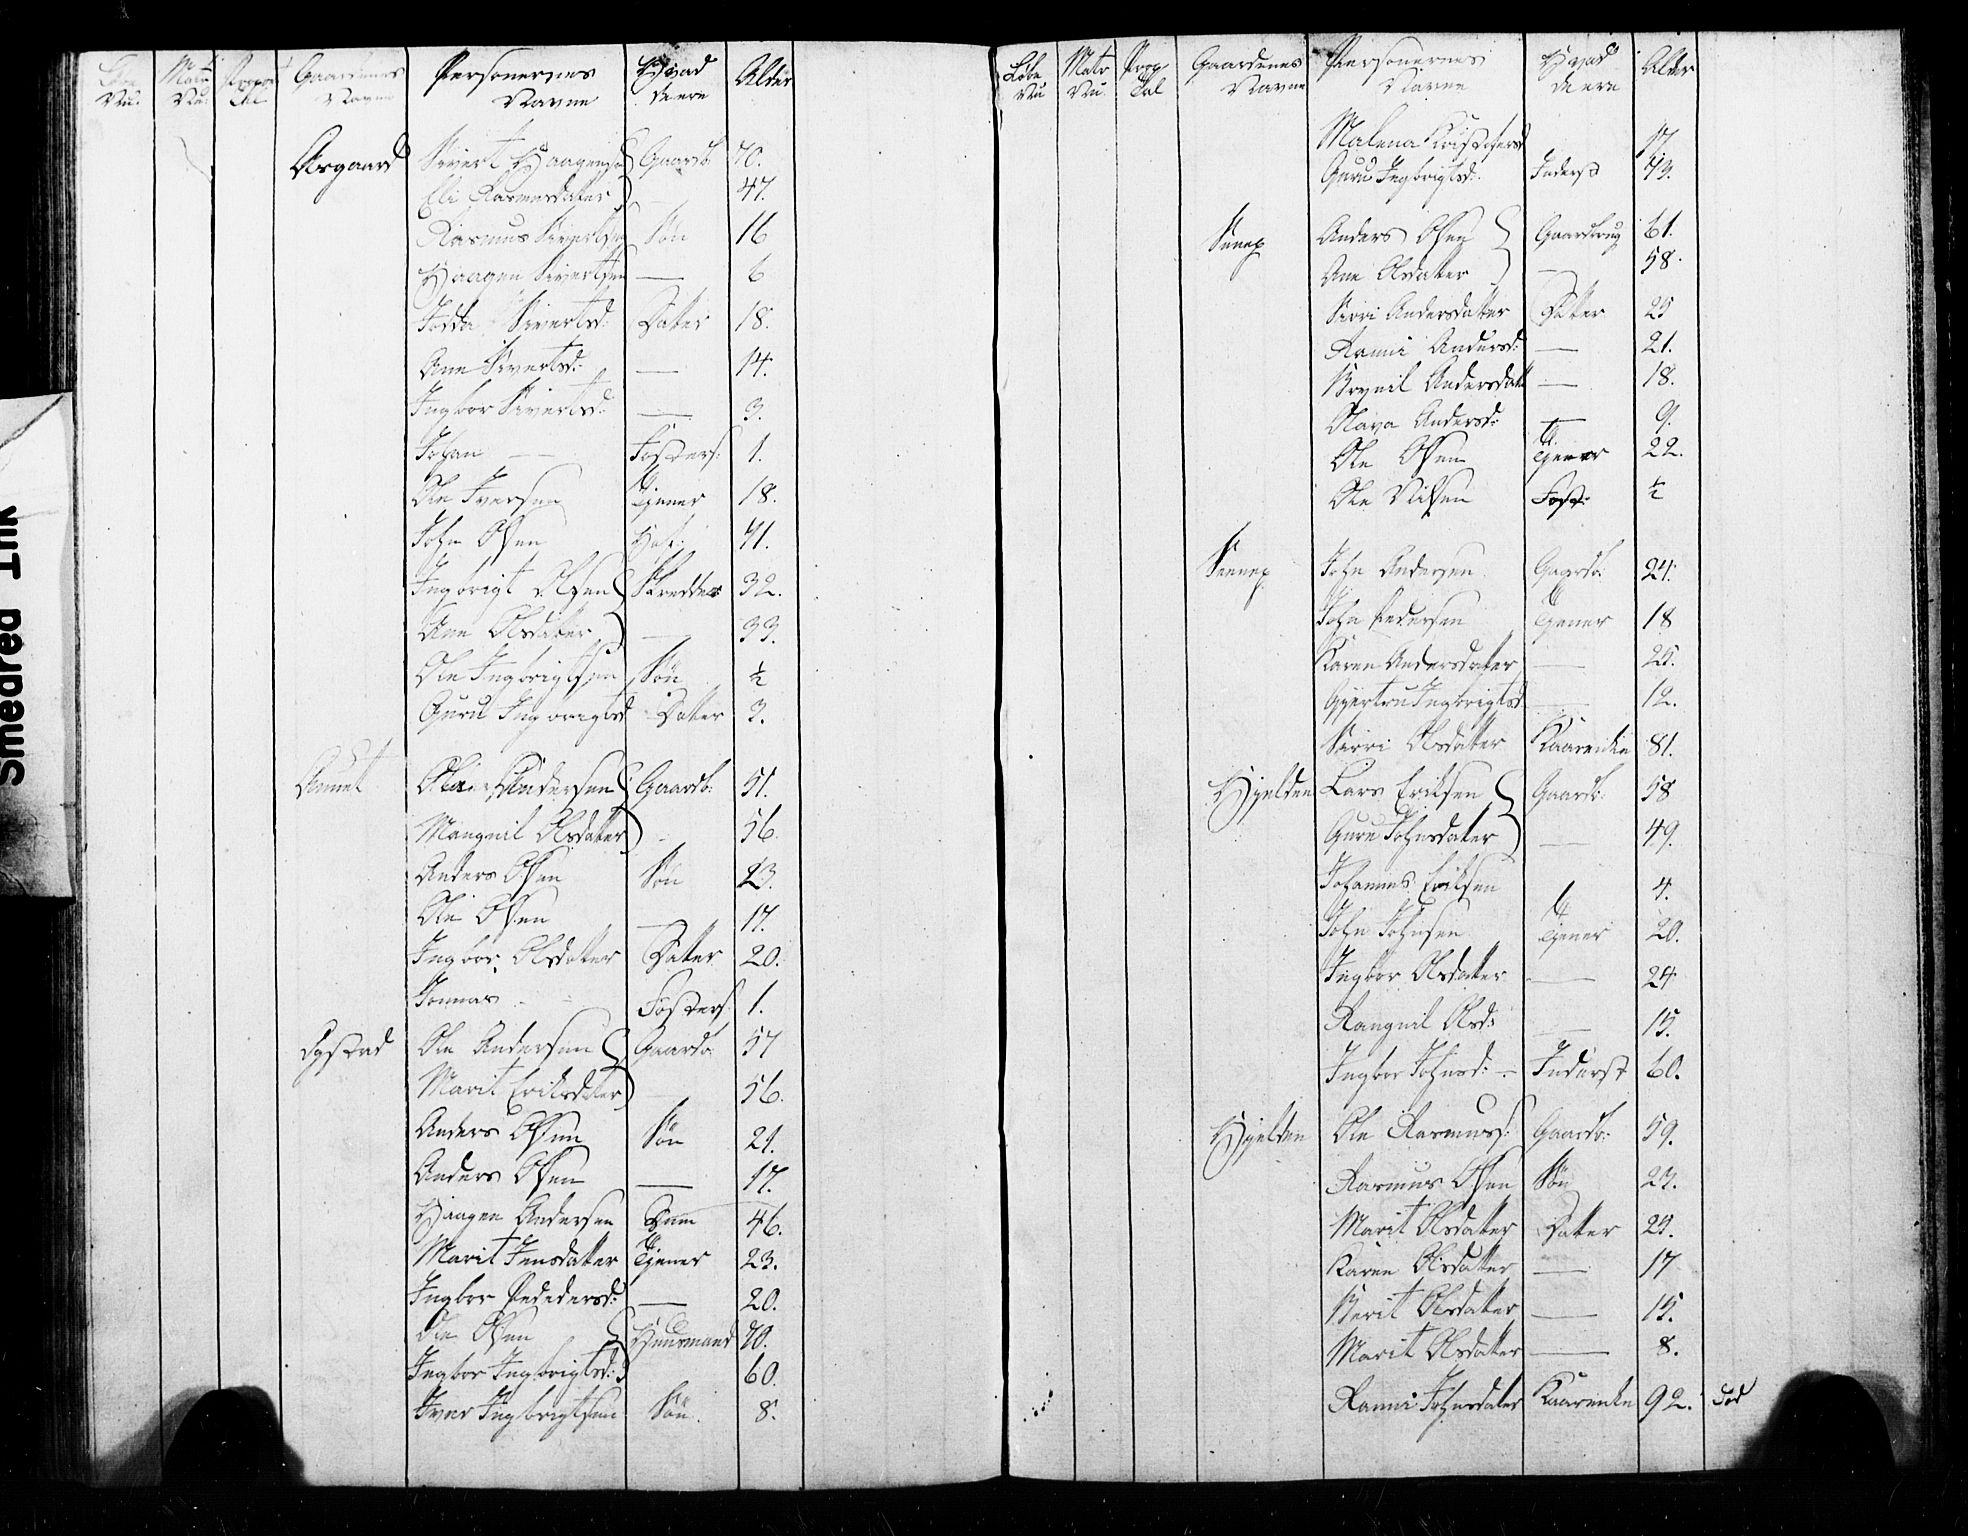 Løbe Nu. Matr Nu. Propor Tal Gaardenes Navne Personernes Navne Hvad de ere Alder
Aasgaard Sivert Haagens: Gaardb: 70.
Eli Rasmusdatter — 47.
Rasmus Sivertsen Søn 16
Haagen Sivertsen — 6
Sivertsd: Datter 18.
Ane Sivertsd: — 14.
Ingbor Sivertsd: — 3.
Johan — Fosters: 1.
Ole Iversen Tjener 18.
John Olsen 41.
Ingbrigt Olsen Skredder 32.
Ane Olsdatter — 33.
Ole Ingbrigtsen Søn ½
Guru Ingbrigtsd Datter 3.
Aunet Andersen Gaardb: 51.
Mangnil Olsdatter - 56.
Anders Olsen Søn 23.
Ole Olsen — 17.
Ingbor Olsdatter Datter 20.
Jonnas - - Fosters: 1.
Ole Andersen Gaardb: 57
Marit Eriksdatter — 56.
Anders Olsen Søn 21.
Anders Olsen — 17.
Haagen Andersen 46.
Marit Jensdatter Tjener 23.
Ingbor Pededersd: — 20.
Ole Olsen Huusmand 70.
Ingbor Ingbrigtsd: 60.
Iver Ingbrigtsen Søn. 8.
Løbe Nu Matr Nu Prop Tal Gaardenes Navne Personernes Navne Hvad de ere Alder
Malena Kristofersd 17.
Guru Ingbrigtsd: Inderst 73.
Anders Olsen Gaardbrug 61.
Ane Olsdatter — 58.
Sirri Andersdatter Datter 25
Ranni Andersd: — 21.
Brynil Andersdatt — 18.
Olava Andersd: — 9.
Ole Olsen Tjener 22.
Ole Nilsen Fost: ½
John Andersen Gaardb: 24.
John Pedersen Tjener 18
Karen Andersdatter — 25.
Gjertru Ingbrigtsd — 12.
Sirri Olsdatter Kaarenke 81.
Hjelden Lars Eriksen Gaardb: 58
Guru Johnsdatter — 49.
Johannes Eriksen 4.
John Johnsen Tjener 20.
Ingbor Olsdatter — 24
Rangnil Olsd: — 15.
Ingbor Johnsd: - Inderst 60.
Hjelden Ole Rasmuss: Gaardb: 59.
Rasmus Olsen Søn 23.
Marit Olsdatter Datter 25.
Karen Olsdatter — 17
Berit Olsdatter — 15.
Marit Olsdatter — 8.
Ranni Johnsdatter Kaarenke 92. død
Smedred Ink